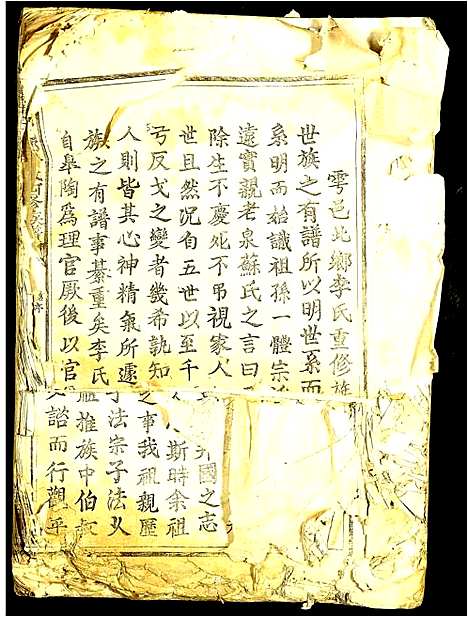 雩邑北鄉李氏重修族
世族之有譜所以明世系而
系明而始識祖孫一體宗
遠實親老泉蘇氏之言曰
除生不慶死不弔視家人
世且然況自五世以至千
弓反戈之變者幾希孰知
人則皆其心神精氣所遞
族之有譜事綦重矣李氏
自皋陶為理官厥後以官
國之志
斯時余祖
之事我祖親匯
子法宗子法义
推族中伯叔
諮而行觀乎